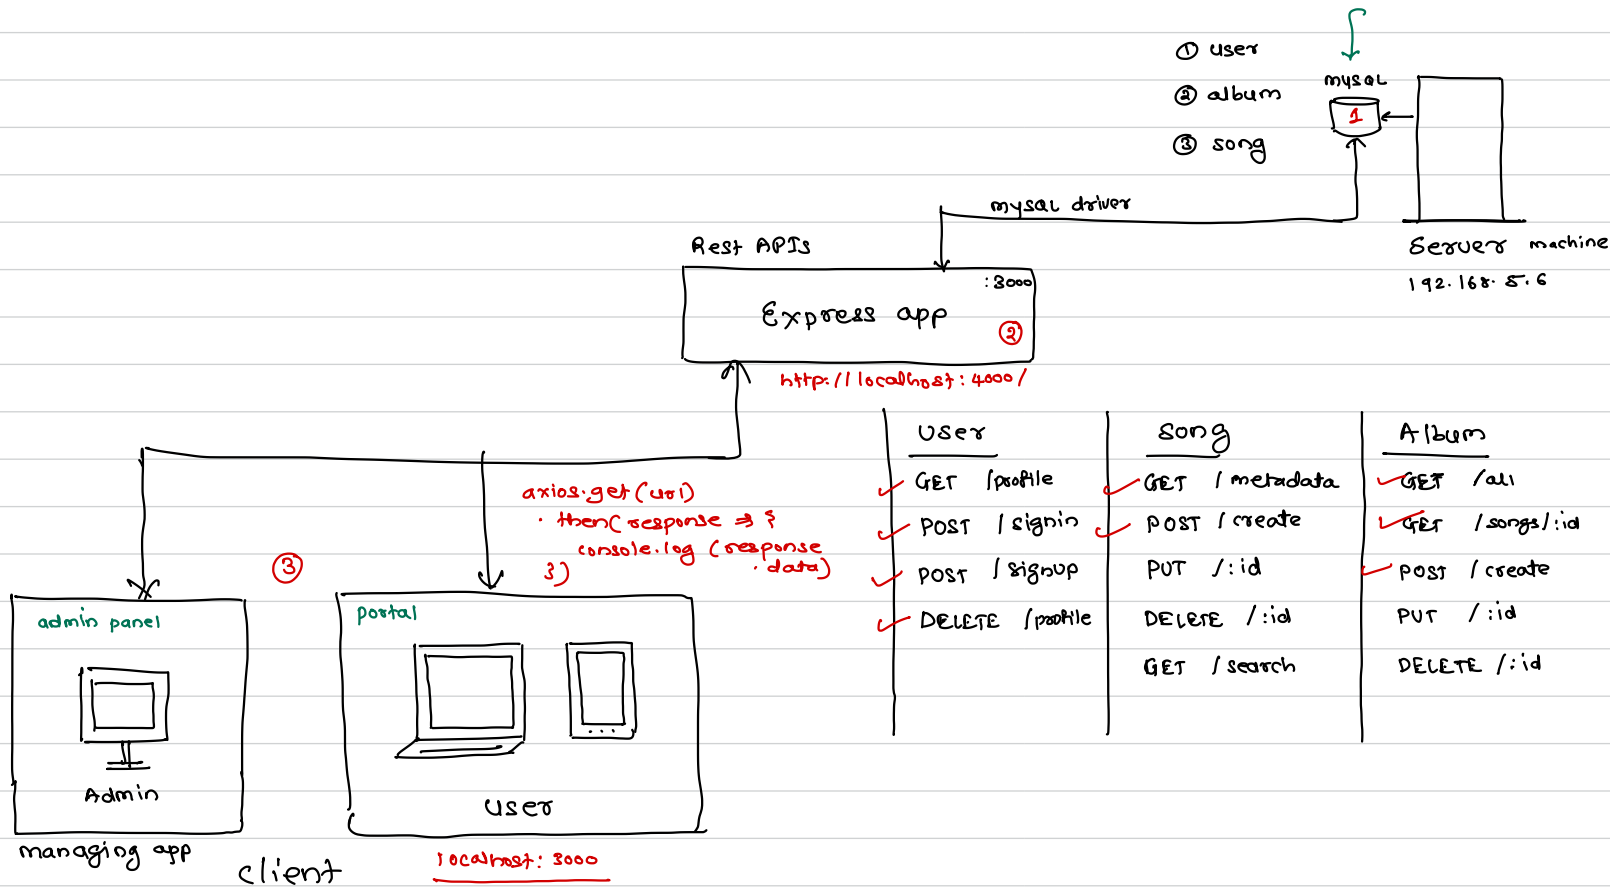 ① user
② album
③ song
mysQL
1
mysQL driver
Server machine
192.168.5.6
Rest APIs
:3000
Express app
②
http://localhost:4000/
axios.get(url)
.then(response => {
console.log(response
.data)
})
③
admin panel
Admin
managing app
portal
user
client
localhost:3000
User
GET /profile
POST /signin
POST /signup
DELETE /profile
Song
GET /metadata
POST /create
PUT /:id
DELETE /:id
GET /search
Album
GET /all
GET /songs/:id
POST /create
PUT /:id
DELETE /:id